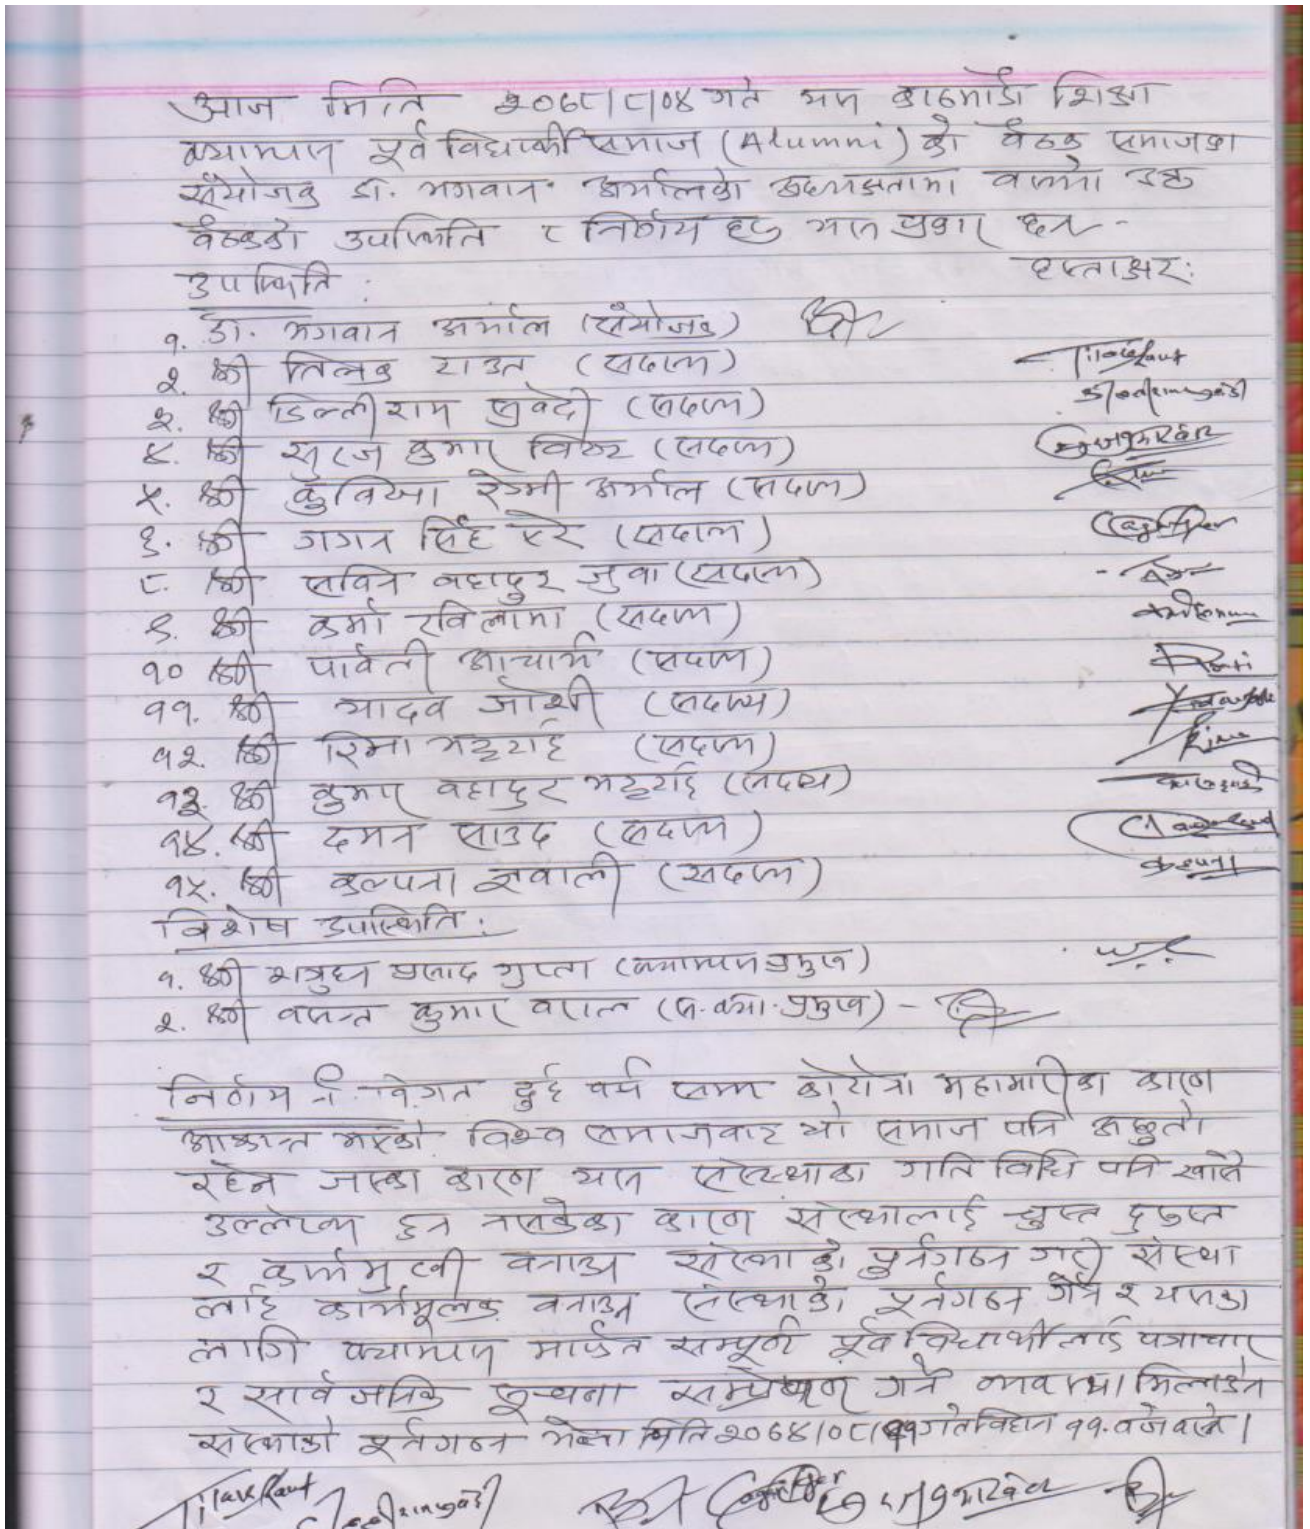 आज मिति २०७८/८/०४ गते यस काठमाडौं शिक्षा
क्याम्पस पूर्व विद्यार्थी समाज (Alumni) को बैठक समाजका
संयोजक डा. भगवान अर्याल को अध्यक्षतामा बस्यो उक्त
बैठकको उपस्थिति र निर्णय हरु यस प्रकार छन् -
उपस्थिति : हस्ताक्षर:
१. डा. भगवान अर्याल (संयोजक)
२. श्री तिलक राउत (सदस्य)
३. श्री डिल्लीराम सुवेदी (सदस्य)
४. श्री सुरज कुमार विष्ट (सदस्य)
५. श्री कुविजा रेग्मी अर्याल (सदस्य)
६. श्री गगन सिंह ऐरे (सदस्य)
८. श्री सविन बहादुर जुवा (सदस्य)
९. श्री कर्मा रवि लामा (सदस्य)
१० श्री पार्वती आचार्य (सदस्य)
११. श्री यादव जोशी (सदस्य)
१२. श्री रिमा भट्टराई (सदस्य)
१३. श्री कुमार बहादुर भट्टराई (सदस्य)
१४. श्री दमन साउद (सदस्य)
१५. श्री कल्पना ज्ञवाली (सदस्य) कल्पना
विशेष उपस्थिति :
१. श्री शत्रुघ्न प्रसाद गुप्ता (क्याम्पस प्रमुख)
२. श्री वसन्त कुमार वराल (स. क्या. प्रमुख) -
निर्णय नं. विगत दुई वर्ष सम्म कोरोना महामारीका कारण
आक्रान्त भएको विश्व समाजबाट यो समाज पनि अछुतो
रहेन जसका कारण यस संस्थाका गति विधि पनि खासै
उल्लेख्य हुन नसकेका कारण संस्थालाई चुस्त दुरुस्त
र कार्यमुखी बनाउन संस्थाको पुर्नगठन गरी संस्था
लाई कार्यमूलक बनाउन संस्थाको पूर्नगठन गर्ने र यसका
लागि क्याम्पस मार्फत सम्पूर्ण पूर्व विद्यार्थीलाई पत्राचार
र सार्वजनिक सूचना सम्प्रेषण गर्ने व्यवस्था मिलाउन
संस्थाको पूर्नगठन भेला मिति गते विहान ११ बजे बस्ने।
Tilak Raut